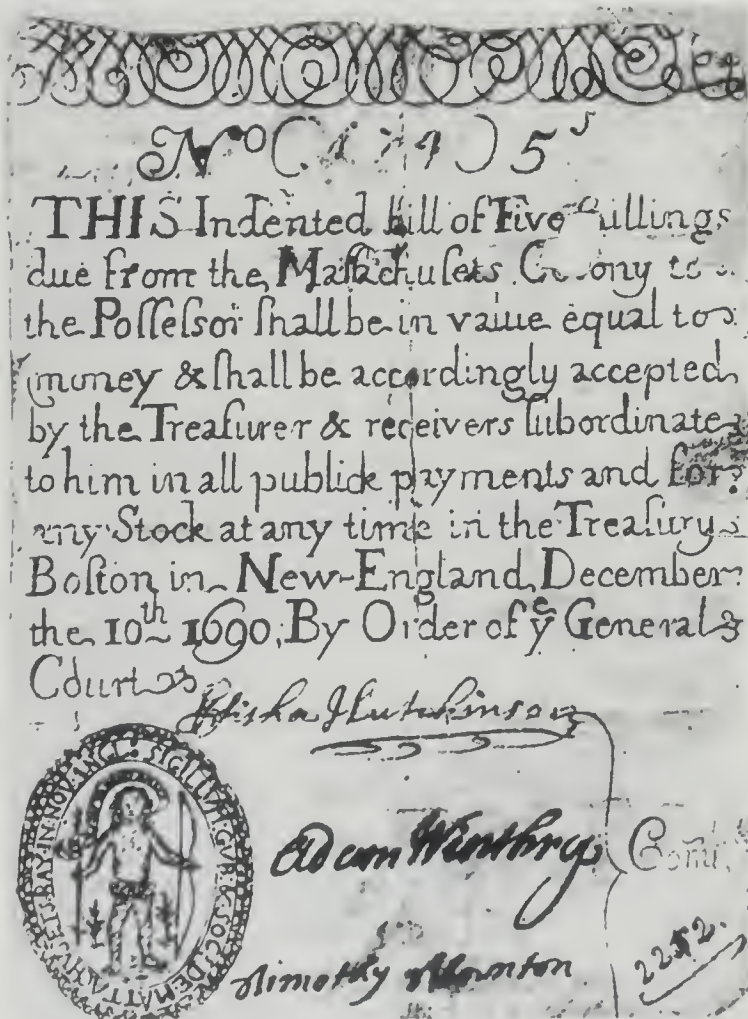 No ( 4 ) 5s
THIS Indented bill of Five
due from the Maſſachuſets to
the Poſſeſsor ſhall be in value equal to
money & ſhall be accordingly accepted
by the Treaſurer & receivers ſubordinate
to him in all publick payments and for
any Stock at any time in the Treaſury
Boſton in New-England, December
the 10th 1690, By Order of ye General
Court
Eliſha Hutchinson
Adam Winthrop
Timothy Thornton
Comt.
2252.
SIGILLVM: GVB: & SOC: DE: MATTACHVSETS: BAY: IN: NOV: ANGL: